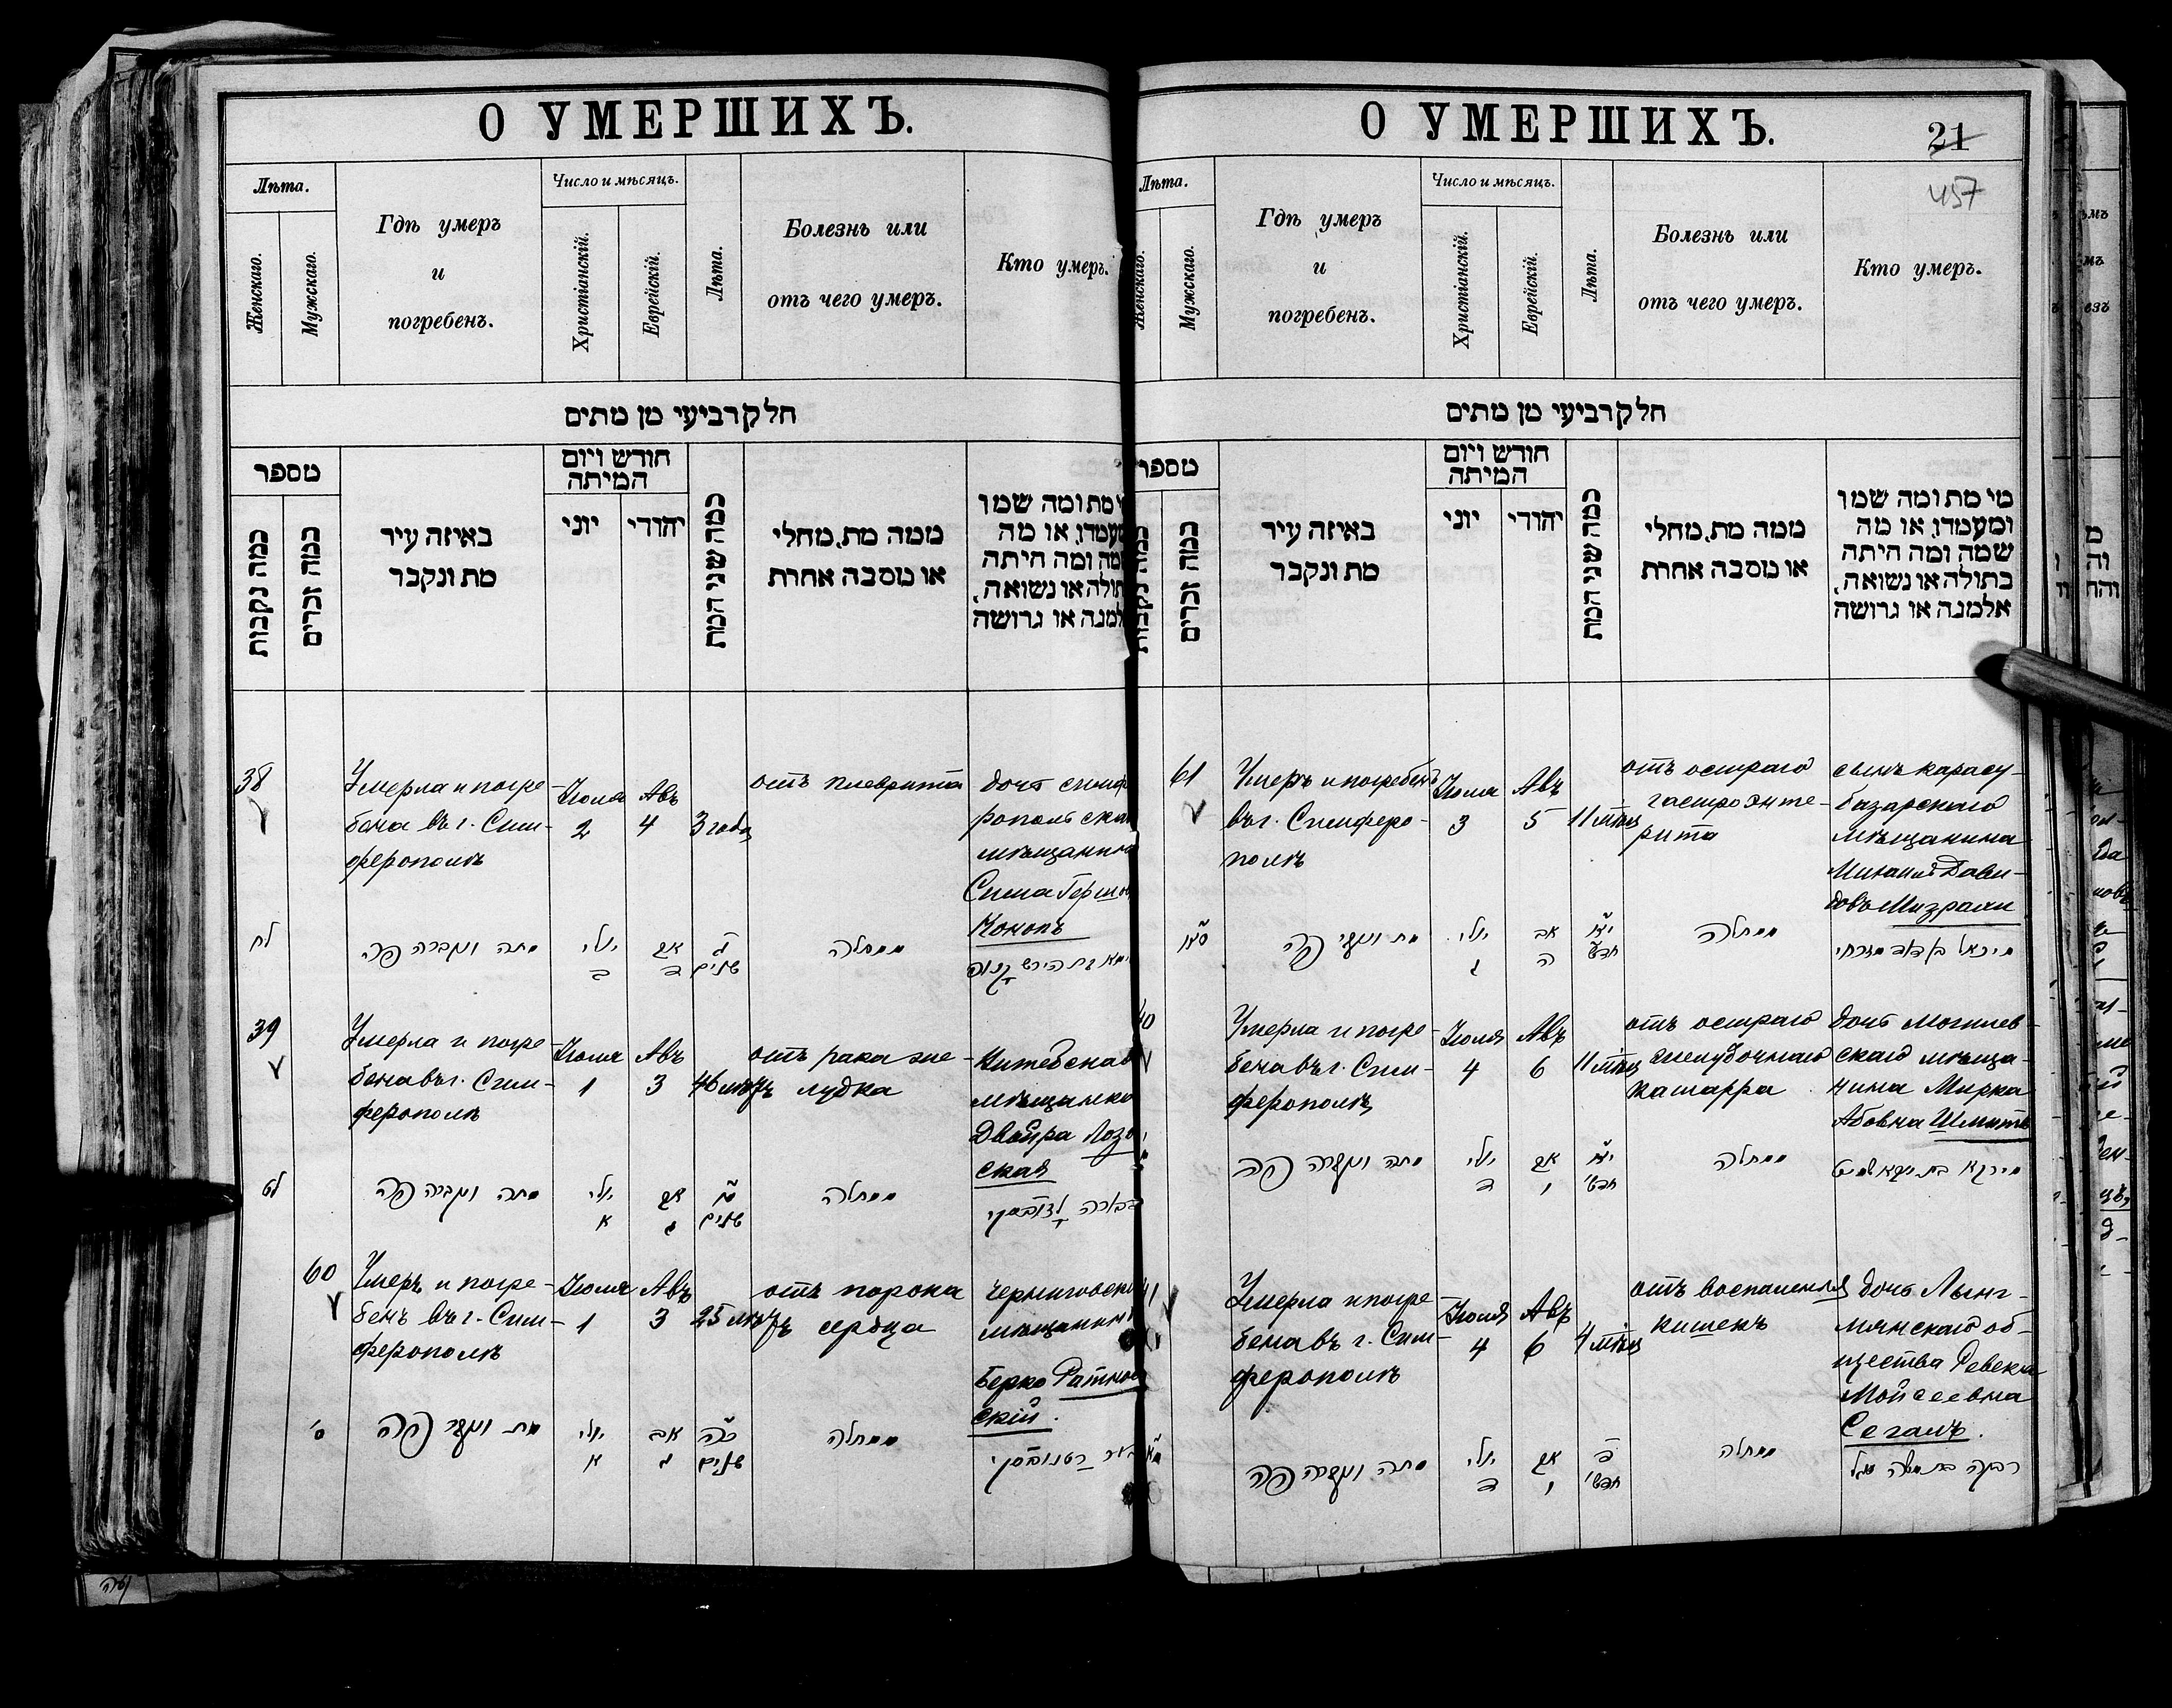 О УМЕРШИХЪ.
Лѣта.
Женскаго.
Мужскаго.
Гдѣ умеръ
и
погребенъ.
Число и мѣсяцъ.
Христіанскій.
Еврейскій.
Лѣта.
Болезнь или
отъ чего умеръ.
Кто умеръ.
חלק רביעי מן מתים
מספר
כמה נקבות
כמה זכרים
באיזה עיר
מת ונקבר
חודש ויום
המיתה
יוני
יהודי
כמה שני המת
ממה מת, מחלי
או מסבה אחרת
מת ומה שמו
או מה
ומה היתה
או נשואה,
או גרושה
38
Умерла и погре-
бена въ г. Сим-
ферополѣ
Іюля
2
Авъ
4
3 года
отъ плеврита
дочь симфе
ропольска
мѣщанина
Сима Герш
Кононъ
לח
מתה ונקברה פה
יולי
ב
אב
ד
ג
שנים
ממחלה
39
Умерла и погре-
бена въ г. Сим-
ферополѣ
Іюля
1
Авъ
3
46 лѣтъ
отъ рака же-
лудка
Витебская
мѣщанка
Двойра Лозо
ская
לט
מתה ונקברה פה
יולי
א
אב
ג
שנים
ממחלה
60
Умеръ и погре-
бенъ въ г. Сим-
ферополѣ
Іюля
1
Авъ
3
25 лѣтъ
отъ порока
сердца
Черниговск
мѣщанинъ
Берко Ратнов
скій.
ס׳
מת ונקבר פה
יולי
א
אב
ג
כה
שנים
ממחלה
רטנובסקי
О УМЕРШИХЪ.
21
457
Лѣта.
Женскаго.
Мужскаго.
Гдѣ умеръ
и
погребенъ.
Число и мѣсяцъ.
Христіанскій.
Еврейскій.
Лѣта.
Болезнь или
отъ чего умеръ.
Кто умеръ.
חלק רביעי מן מתים
מספר
כמה זכרים
באיזה עיר
מת ונקבר
חודש ויום
המיתה
יוני
יהודי
כמה שני המת
ממה מת, מחלי
או מסבה אחרת
מי מת ומה שמו
ומעמדו, או מה
שמה ומה היתה
בתולה או נשואה,
אלמנה או גרושה
61
Умеръ и погребенъ
въ г. Симферо-
полѣ
Іюля
3
Авъ
5
11 мѣц
отъ остраго
гастроэнте-
рита
сынъ карасу-
базарскаго
мѣщанина
Михаилъ Дави-
довъ Мизрахи
מת ונקבר פה
יולי
ג
אב
ה
יא
חדש
ממחלה
מיכאל בן דוד מזרחי
40
Умерла и погре-
бена въ г. Сим-
ферополѣ
Іюля
4
Авъ
6
11 мѣц
отъ остраго
желудочнаго
катарра
дочь Могилев-
скаго мѣща-
нина Мирка
Абовна Шмитъ
מתה ונקברה פה
יולי
ד
אב
ו
יא
חדשי
ממחלה
41
Умерла и погре-
бена въ г. Сим-
ферополѣ
Іюля
4
Авъ
6
4 мѣц
отъ воспаленія
кишекъ
дочь Лынг-
мянскаго об-
щества Ревекка
Мойсеевна
Сегалъ.
מתה ונקברה פה
יולי
ד
אב
ו
ד
חדשי
ממחלה
רבקה בת משה סגל